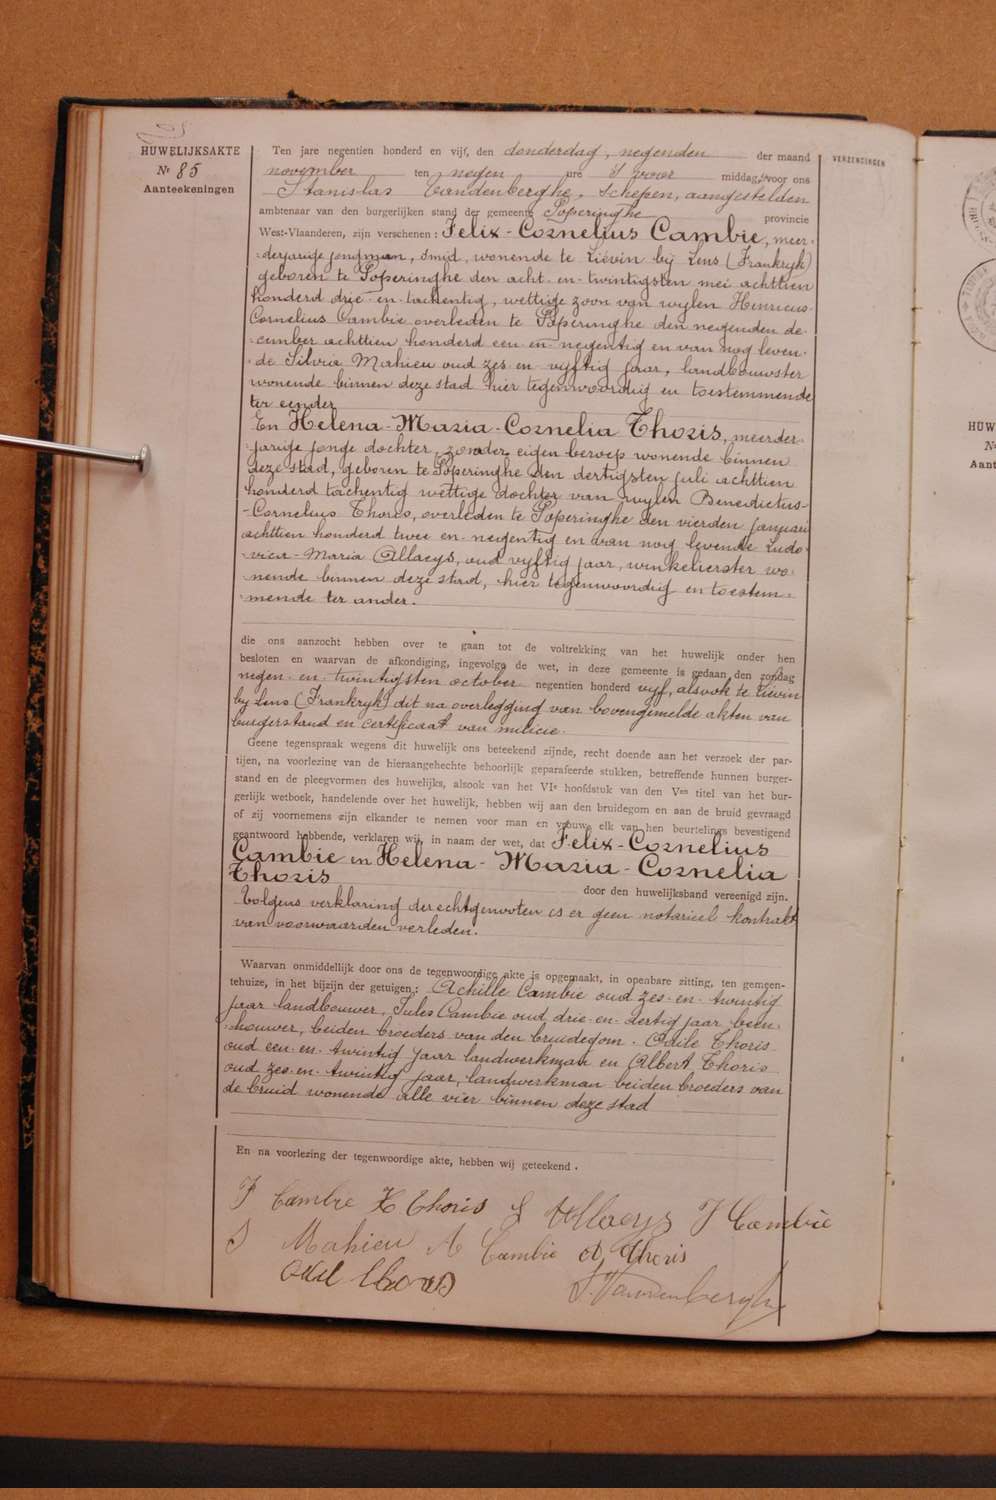 HUWELIJKSAKTE
Nr 85
Aanteekeningen
VERZENDINGEN
Ten jare negentien honderd en vijf, den donderdag, negenden der maand
november ten negen ure 's voor middag, voor ons
Stanislas Vandenberghe, Schepen, aangestelden
ambtenaar van den burgerlijken stand der gemeente Poperinghe provincie
West-Vlaanderen, zijn verschenen: Felix-Cornelius Cambie, meer-
derjarige jongman, smid, wonende te Liévin bij Lens (Frankrijk)
geboren te Poperinghe den acht-en-twintigsten mei achttien
honderd drie-en-tachentig, wettige zoon van wylen Henricus-
Cornelius Cambie overleden te Poperinghe den negenden de-
cember achttien honderd een-en-negentig en van nog leven-
de Silvia Mahieu oud zes-en-vyftig jaar, landbouwster
wonende binnen deze stad hier tegenwoordig en toestemmende
ter eender
En Helena-Maria-Cornelia Thoris, meerder-
jarige jonge dochter, zonder eigen beroep wonende binnen
deze stad, geboren te Poperinghe den dertigsten juli achttien
honderd tachentig wettige dochter van wylen Benedictus-
-Cornelius Thoris, overleden te Poperinghe den vierden januari
achttien honderd twee-en-negentig en van nog levende Ludo-
vica-Maria Allaeys, oud vyftig jaar, winkelierster wo-
nende binnen deze stad, hier tegenwoordig en toestem-
mende ter ander.
die ons aanzocht hebben over te gaan tot de voltrekking van het huwelijk onder hen
besloten en waarvan de afkondiging, ingevolge de wet, in deze gemeente is gedaan den zondag
negen-en-twintigsten october negentien honderd vyf, alsook te Lievin
by Lens (Frankryk) dit na overlegging van bovengemelde akten van
burgerstand en certificaat van milicie.
Geene tegenspraak wegens dit huwelijk ons beteekend zijnde, recht doende aan het verzoek der par-
tijen, na voorlezing van de hieraangehechte behoorlijk geparafeerde stukken, betreffende hunnen burger-
stand en de pleegvormen des huwelijks, alsook van het VIe hoofdstuk van den Ven titel van het bur-
gerlijk wetboek, handelende over het huwelijk, hebben wij aan den bruidegom en aan de bruid gevraagd
of zij voornemens zijn elkander te nemen voor man en vrouw, elk van hen beurtelings bevestigend
geantwoord hebbende, verklaren wij, in naam der wet, dat Felix-Cornelius
Cambie en Helena-Maria-Cornelia
Thoris door den huwelijksband vereenigd zijn.
Volgens verklaring der echtgenooten is er geen notarieel kontrakt
van voorwaarden verleden.
Waarvan onmiddellijk door ons de tegenwoordige akte is opgemaakt, in openbare zitting, ten gemeen-
tehuize, in het bijzijn der getuigen: Achille Cambie oud zes-en-twintig
jaar landbouwer, Jules Cambie oud drie-en-dertig jaar been-
houwer, beiden broeders van den bruidegom. Odile Thoris
oud een-en-twintig jaar landwerkman en Albert Thoris
oud zes-en-twintig jaar, landwerkman beiden broeders van
de bruid wonende alle vier binnen deze stad
En na voorlezing der tegenwoordige akte, hebben wij geteekend.
F Cambie H Thoris L Allaeys J Cambie
S Mahieu A Cambie A Thoris
Odil Thoris S. Vandenberghe
HUW
Nr
Aant